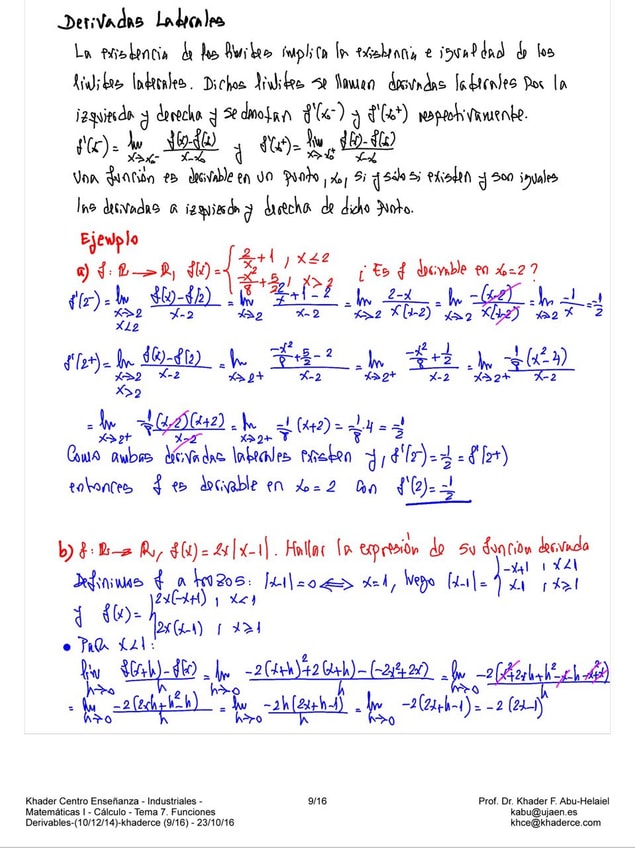 Derivadas Laterales
La existencia de los límites implica la existencia e igualdad de los
límites laterales. Dichos límites se llaman derivadas laterales por la
izquierda y derecha y se denotan f'(x₀⁻) y f'(x₀⁺) respectivamente.
f'(x₀⁻) = lim_{x→x₀⁻} (f(x)-f(x₀))/(x-x₀) y f'(x₀⁺) = lim_{x→x₀⁺} (f(x)-f(x₀))/(x-x₀)
Una función es derivable en un punto, x₀, si y sólo si existen y son iguales
las derivadas a izquierda y derecha de dicho punto.
Ejemplo
a) f: ℝ → ℝ, f(x) = { 2/x + 1, x ≤ 2 ; -x²/8 + 5/2, x > 2 ¿Es f derivable en x₀=2?
f'(2⁻) = lim_{x→2, x<2} (f(x)-f(2))/(x-2) = lim_{x→2} (2/x + 1 - 2)/(x-2) = lim_{x→2} (2-x)/(x(x-2)) = lim_{x→2} -(x-2)/(x(x-2)) = lim_{x→2} -1/x = -1/2
f'(2+) = lim_{x→2, x>2} (f(x)-f(2))/(x-2) = lim_{x→2+} (-x²/8 + 5/2 - 2)/(x-2) = lim_{x→2+} (-x²/8 + 1/2)/(x-2) = lim_{x→2+} -1/8 (x²-4)/(x-2)
= lim_{x→2+} -1/8 (x-2)(x+2)/(x-2) = lim_{x→2+} -1/8 (x+2) = -1/8 · 4 = -1/2
Como ambas derivadas laterales existen y, f'(2⁻) = -1/2 = f'(2+)
entonces f es derivable en x₀ = 2 con f'(2) = -1/2
b) f: ℝ → ℝ, f(x) = 2x|x-1|. Hallar la expresión de su función derivada
Definimos f a trozos: |x-1| = 0 ⟺ x=1, luego |x-1| = { -x+1, x<1 ; x-1, x≥1
y f(x) = { 2x(-x+1), x<1 ; 2x(x-1), x≥1
• Para x<1:
lim_{h→0} (f(x+h)-f(x))/h = lim_{h→0} (-2(x+h)²+2(x+h)-(-2x²+2x))/h = lim_{h→0} -2(x²+2xh+h²-x-h-x²+x)/h
= lim_{h→0} -2(2xh+h²-h)/h = lim_{h→0} -2h(2x+h-1)/h = lim_{h→0} -2(2x+h-1) = -2(2x-1)
Khader Centro Enseñanza - Industriales -
Matemáticas I - Cálculo - Tema 7. Funciones
Derivables-(10/12/14)-khaderce (9/16) - 23/10/16
9/16
Prof. Dr. Khader F. Abu-Helaiel
kabu@ujaen.es
khce@khaderce.com